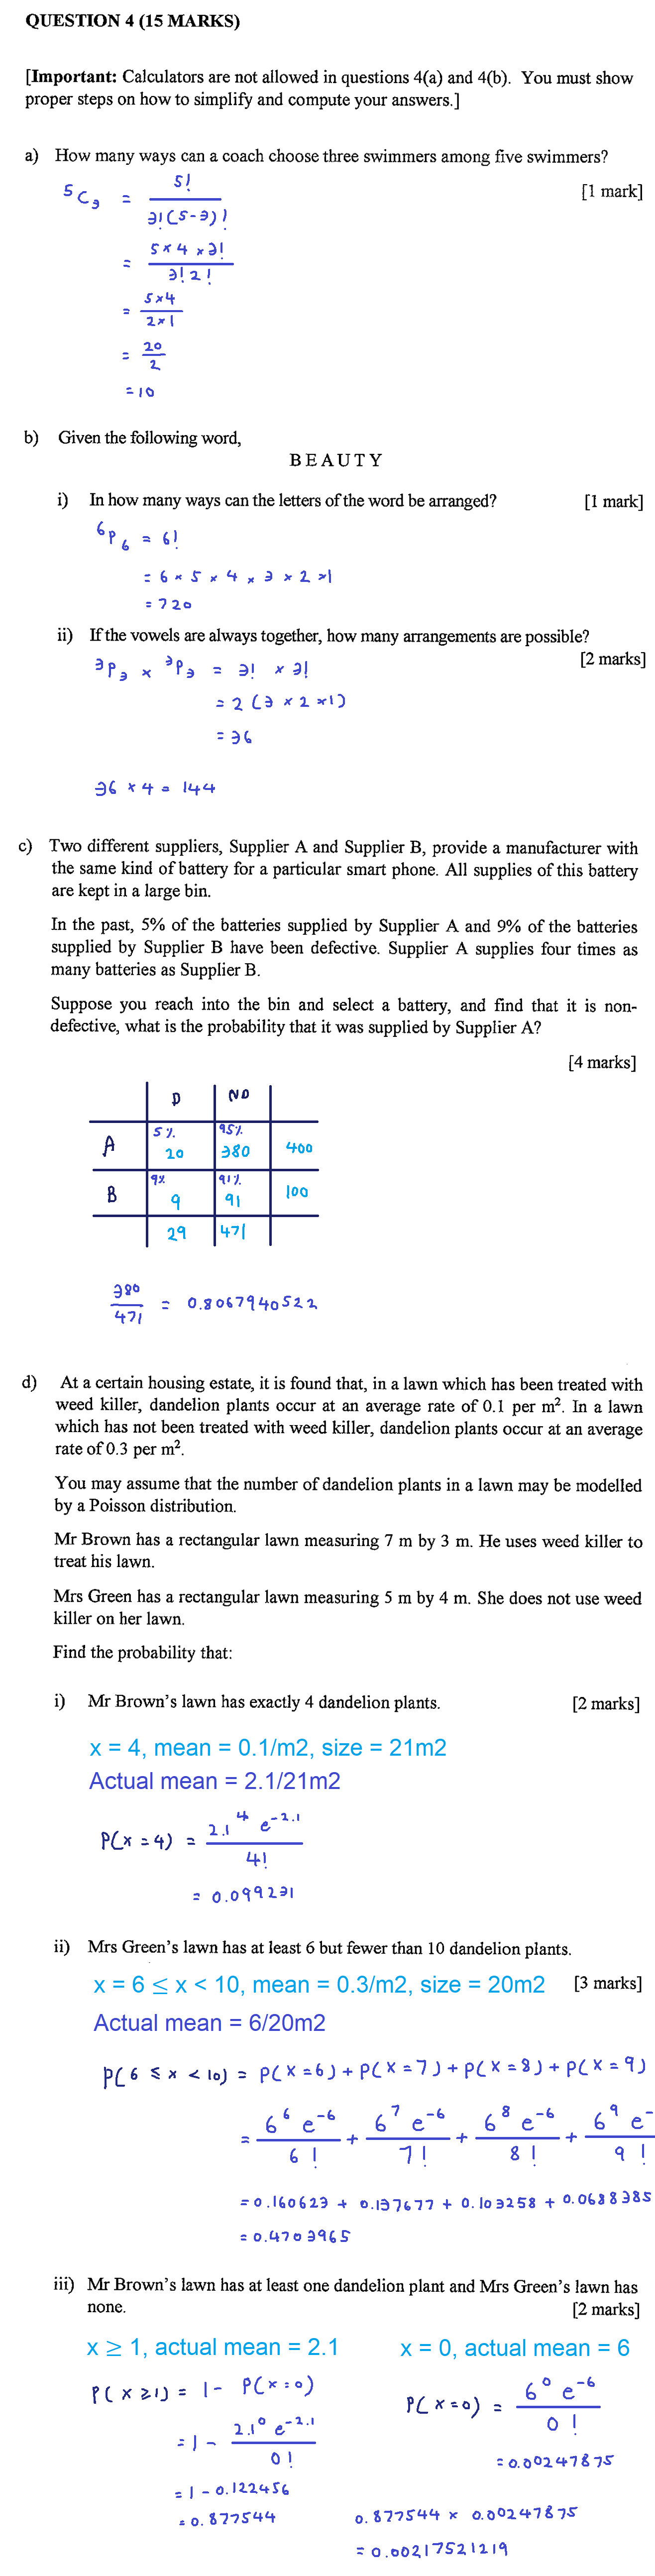 QUESTION 4 (15 MARKS)
[Important: Calculators are not allowed in questions 4(a) and 4(b). You must show
proper steps on how to simplify and compute your answers.]
a) How many ways can a coach choose three swimmers among five swimmers?
[1 mark]
⁵C₃ = 5! / 3!(5-3)!
= 5×4×3! / 3!2!
= 5×4 / 2×1
= 20 / 2
= 10
b) Given the following word,
BEAUTY
i) In how many ways can the letters of the word be arranged? [1 mark]
⁶P₆ = 6!
= 6 × 5 × 4 × 3 × 2 ×1
= 720
ii) If the vowels are always together, how many arrangements are possible?
[2 marks]
³P₃ × ³P₃ = 3! × 3!
= 2 (3 × 2 ×1)
= 36
36 × 4 = 144
c) Two different suppliers, Supplier A and Supplier B, provide a manufacturer with
the same kind of battery for a particular smart phone. All supplies of this battery
are kept in a large bin.
In the past, 5% of the batteries supplied by Supplier A and 9% of the batteries
supplied by Supplier B have been defective. Supplier A supplies four times as
many batteries as Supplier B.
Suppose you reach into the bin and select a battery, and find that it is non-
defective, what is the probability that it was supplied by Supplier A?
[4 marks]
D ND
A 5% 20 95% 380 400
B 9% 9 91% 91 100
29 471
380 / 471 = 0.8067940522
d) At a certain housing estate, it is found that, in a lawn which has been treated with
weed killer, dandelion plants occur at an average rate of 0.1 per m². In a lawn
which has not been treated with weed killer, dandelion plants occur at an average
rate of 0.3 per m².
You may assume that the number of dandelion plants in a lawn may be modelled
by a Poisson distribution.
Mr Brown has a rectangular lawn measuring 7 m by 3 m. He uses weed killer to
treat his lawn.
Mrs Green has a rectangular lawn measuring 5 m by 4 m. She does not use weed
killer on her lawn.
Find the probability that:
i) Mr Brown's lawn has exactly 4 dandelion plants. [2 marks]
x = 4, mean = 0.1/m2, size = 21m2
Actual mean = 2.1/21m2
P(x = 4) = 2.1⁴ e^-2.1 / 4!
= 0.099231
ii) Mrs Green's lawn has at least 6 but fewer than 10 dandelion plants.
x = 6 ≤ x < 10, mean = 0.3/m2, size = 20m2 [3 marks]
Actual mean = 6/20m2
P(6 ≤ x < 10) = P(X = 6) + P(X = 7) + P(X = 8) + P(X = 9)
= 6⁶ e⁻⁶ / 6! + 6⁷ e⁻⁶ / 7! + 6⁸ e⁻⁶ / 8! + 6⁹ e⁻ / 9!
= 0.160623 + 0.137677 + 0.103258 + 0.0688385
= 0.4703965
iii) Mr Brown's lawn has at least one dandelion plant and Mrs Green's lawn has
none. [2 marks]
x ≥ 1, actual mean = 2.1 x = 0, actual mean = 6
P(x ≥ 1) = 1 - P(x = 0)
= 1 - 2.1⁰ e^-2.1 / 0!
= 1 - 0.122456
= 0.877544
P(x = 0) = 6⁰ e⁻⁶ / 0!
= 0.00247875
0.877544 × 0.00247875
= 0.00217521219